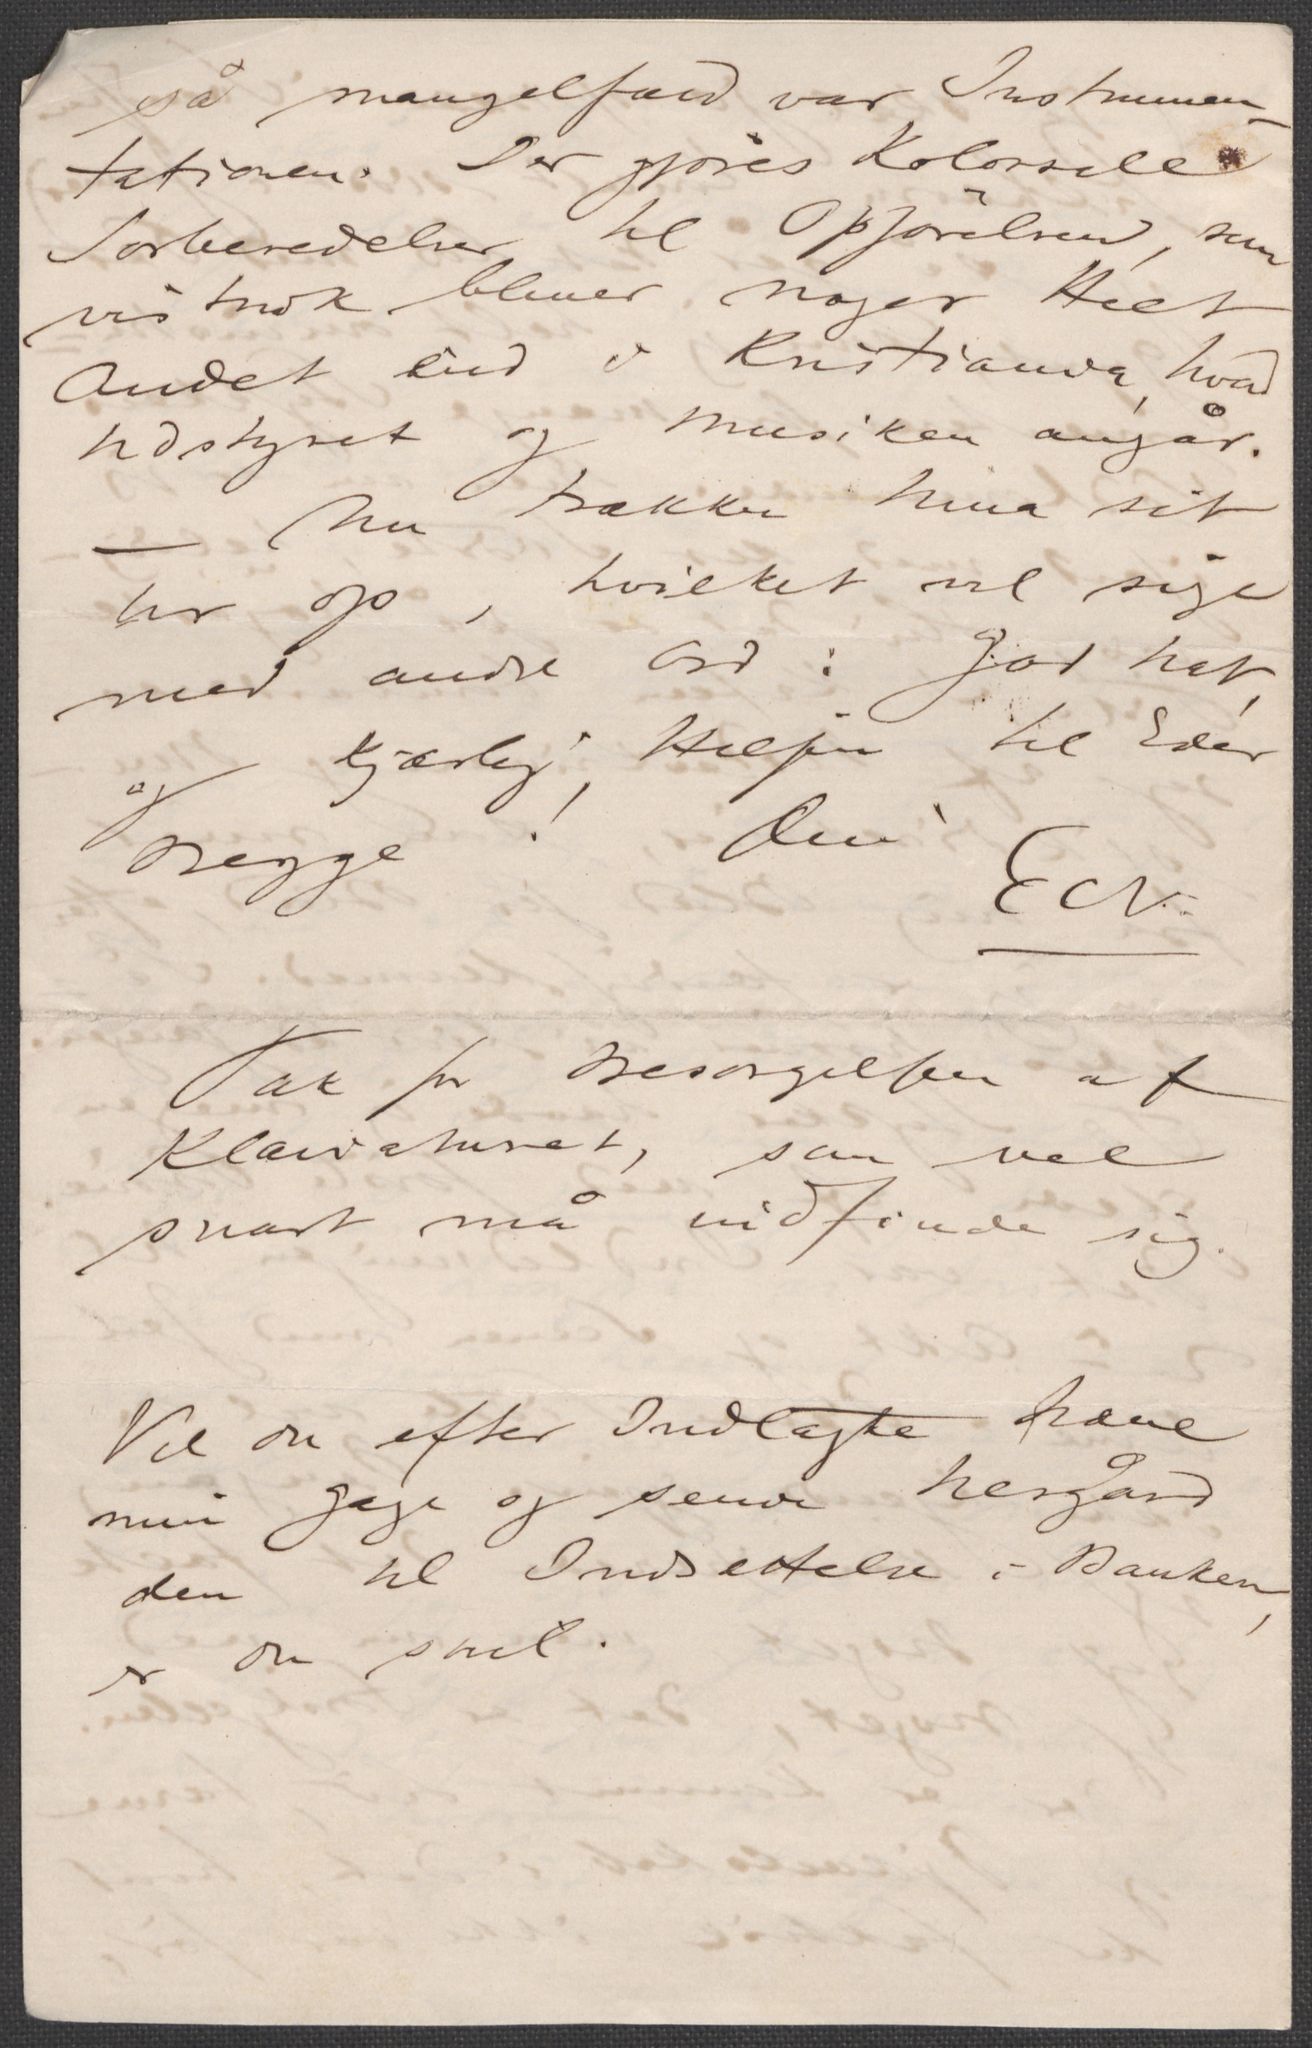 så mangelfuld var Instrumen-
tationen. Der gjøres Kolossale
Forberedelser til Opførelsen, som
vistnok bliver noget Helt
Andet end i Kristiania, hvad
Udstyret og Musiken angår.
— Nu trækker Nina sit
Ur op, hvilket vil sige
med andre Ord: God Nat,
og kjærlig Hilsen til Eder
Begge! Din
EG.
Tak for Besørgelsen af
Klaverudtoget, som vel
snart må indfinde sig.
Vil du efter Indlagte hæve
min Gage og sende Nesgård
den til Indsættelse i Banken,
er du snil.